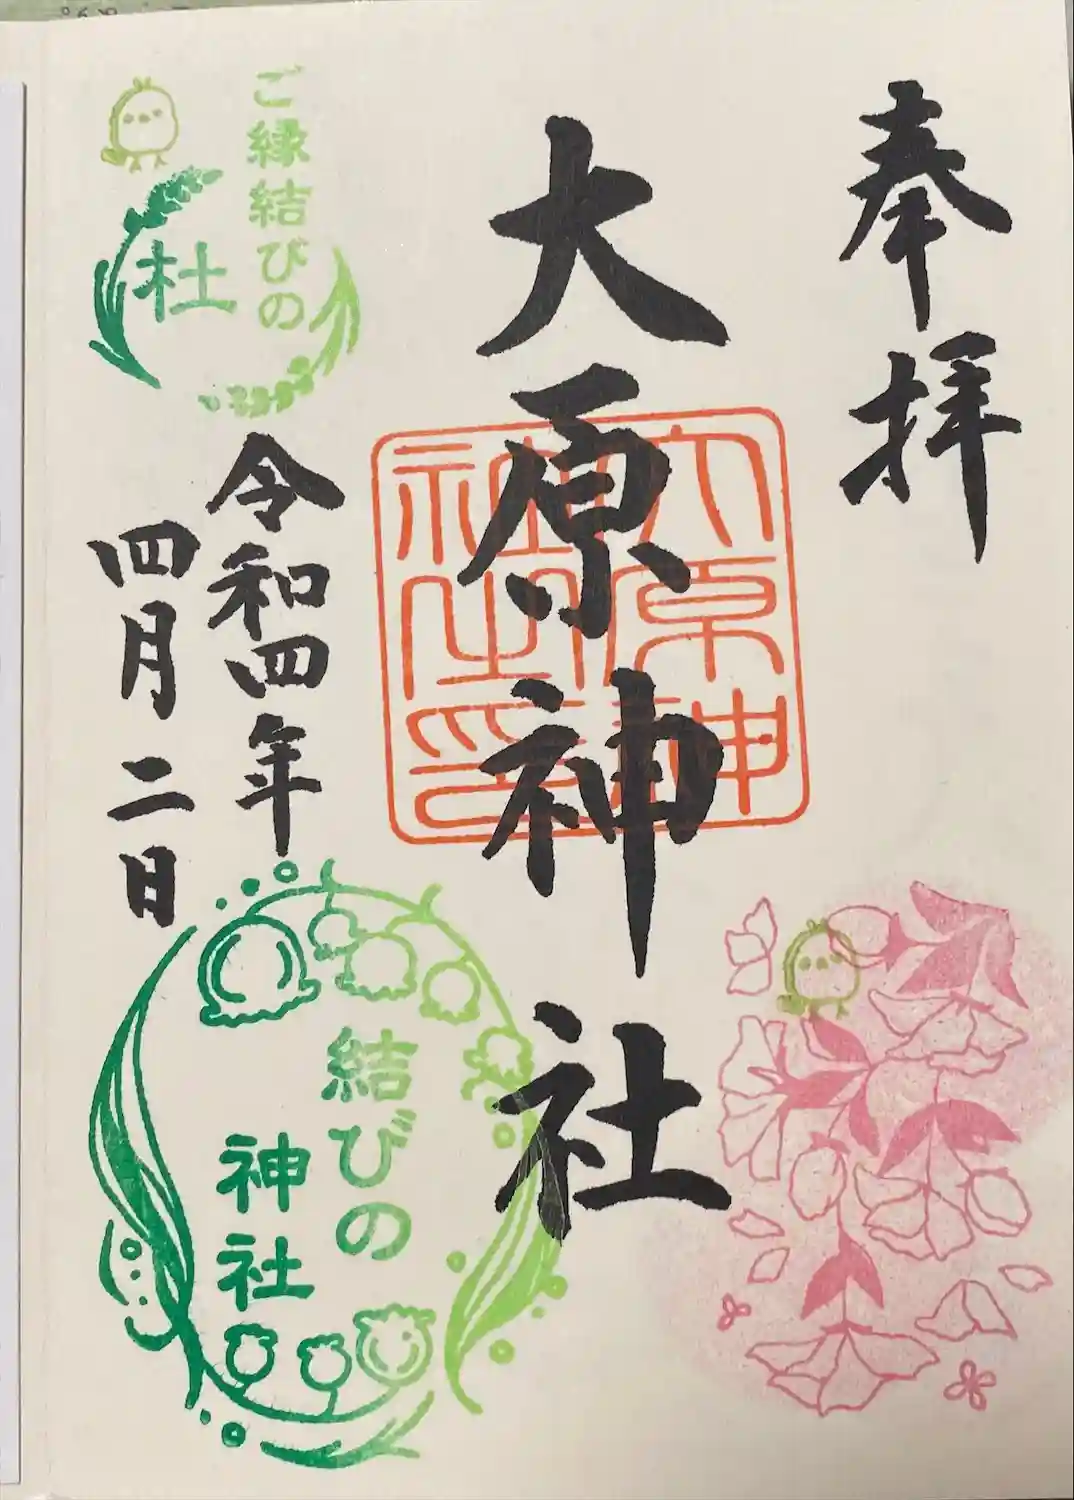 奉拝
大原神社
大原神社之印
令和四年
四月二日
ご縁結びの
杜
結びの
神社